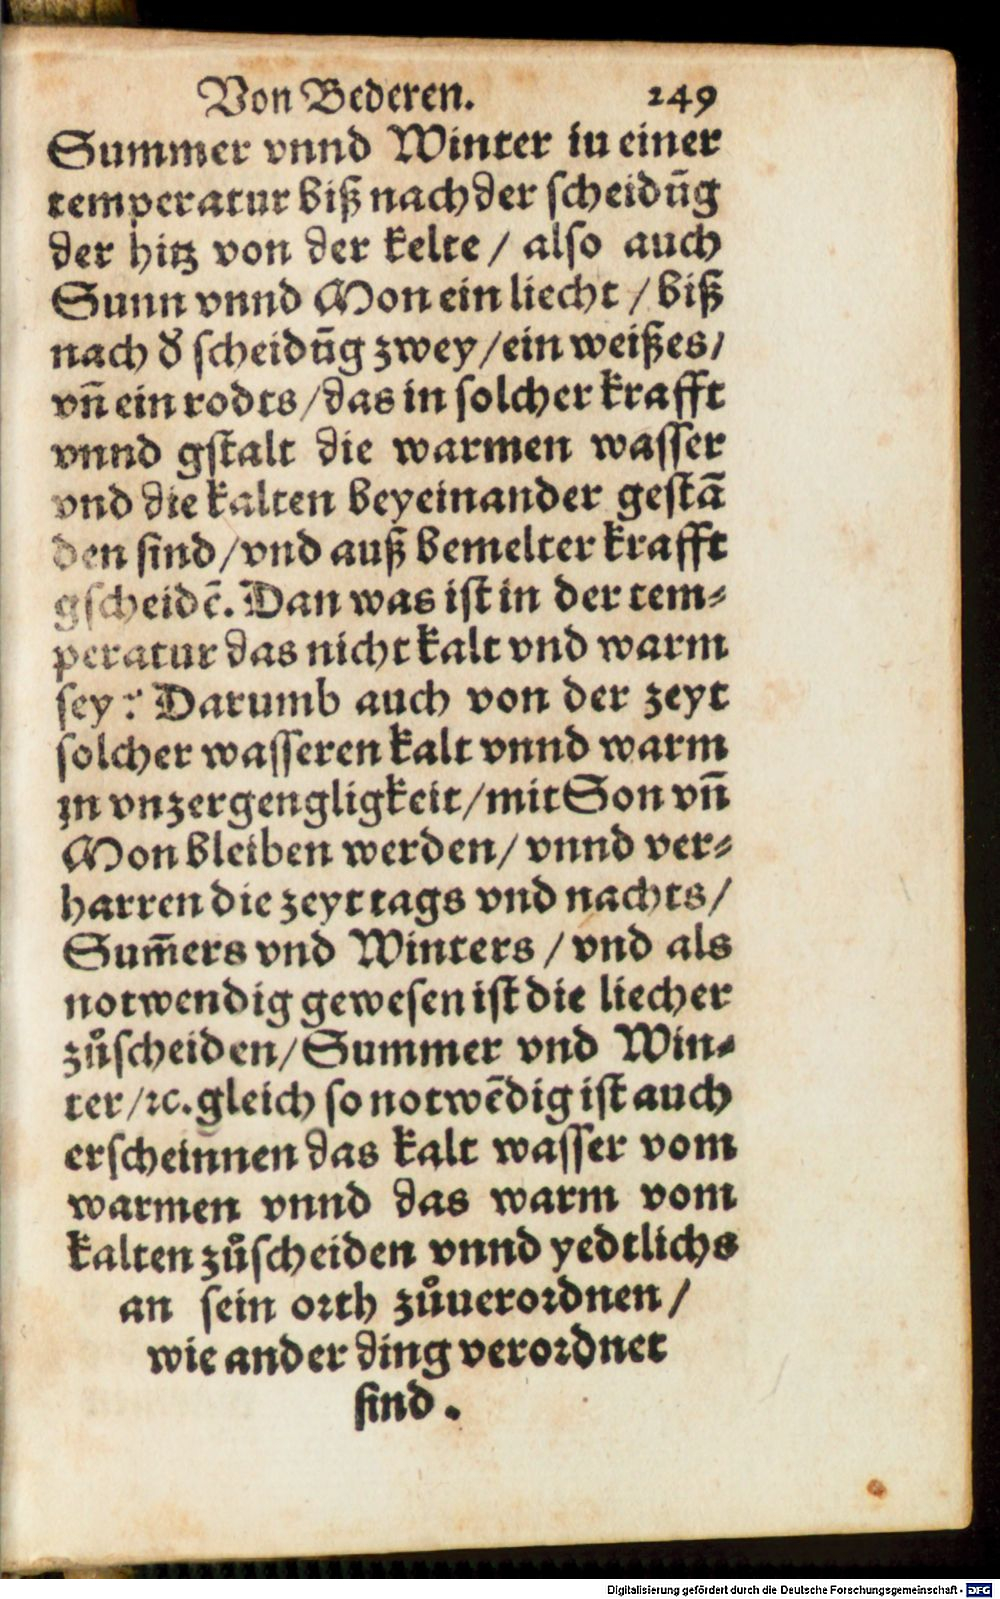 Von Bederen. 249
Summer vnnd Winter in einer
temperatur biß nach der scheidũg
der hitz von der kelte / also auch
Sunn vnnd Mon ein liecht / biß
nach d̕ scheidũg zwey / ein weißes /
vñ ein rodts / das in solcher krafft
vnnd gstalt die warmen wasser
vnd die kalten beyeinander gestã
den sind / vnd auß bemelter krafft
gscheidẽ. Dan was ist in der tem⸗
peratur das nicht kalt vnd warm
sey? Darumb auch von der zeyt
solcher wasseren kalt vnnd warm
in vnzergengligkeit / mit Son vñ
Mon bleiben werden / vnnd ver⸗
harren die zeyt tags vnd nachts /
Sum̃ers vnd Winters / vnd als
notwendig gewesen ist die liecher
zůscheiden / Summer vnd Win⸗
ter / ꝛc. gleich so notwẽdig ist auch
erscheinnen das kalt wasser vom
warmen vnnd das warm vom
kalten zůscheiden vnnd yedtlichs
an sein orth zůuerordnen /
wie ander ding verordnet
sind.
Digitalisierung gefördert durch die Deutsche Forschungsgemeinschaft - DFG